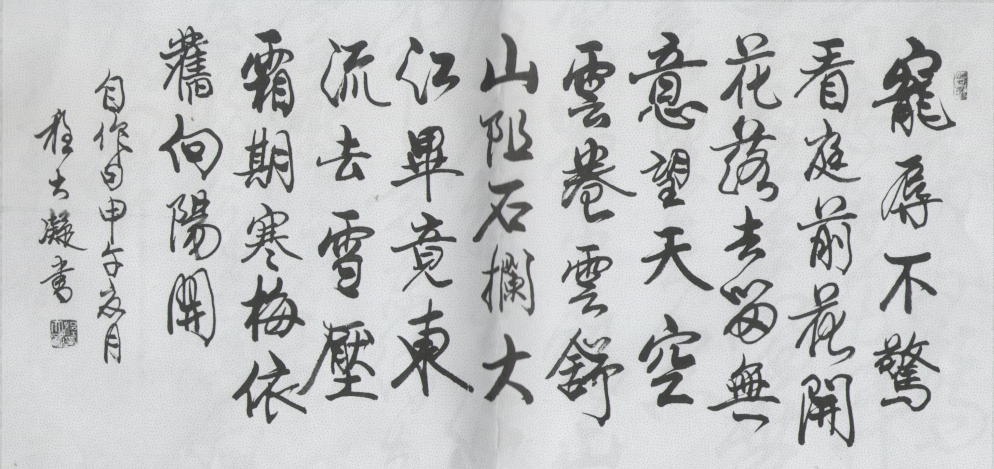 寵辱不驚
看庭前花開
花落去留無
意望天空
雲卷雲舒
山阻石攔大
江畢竟東
流去雪壓
霜期寒梅依
舊向陽開
自作甲午
大凝書